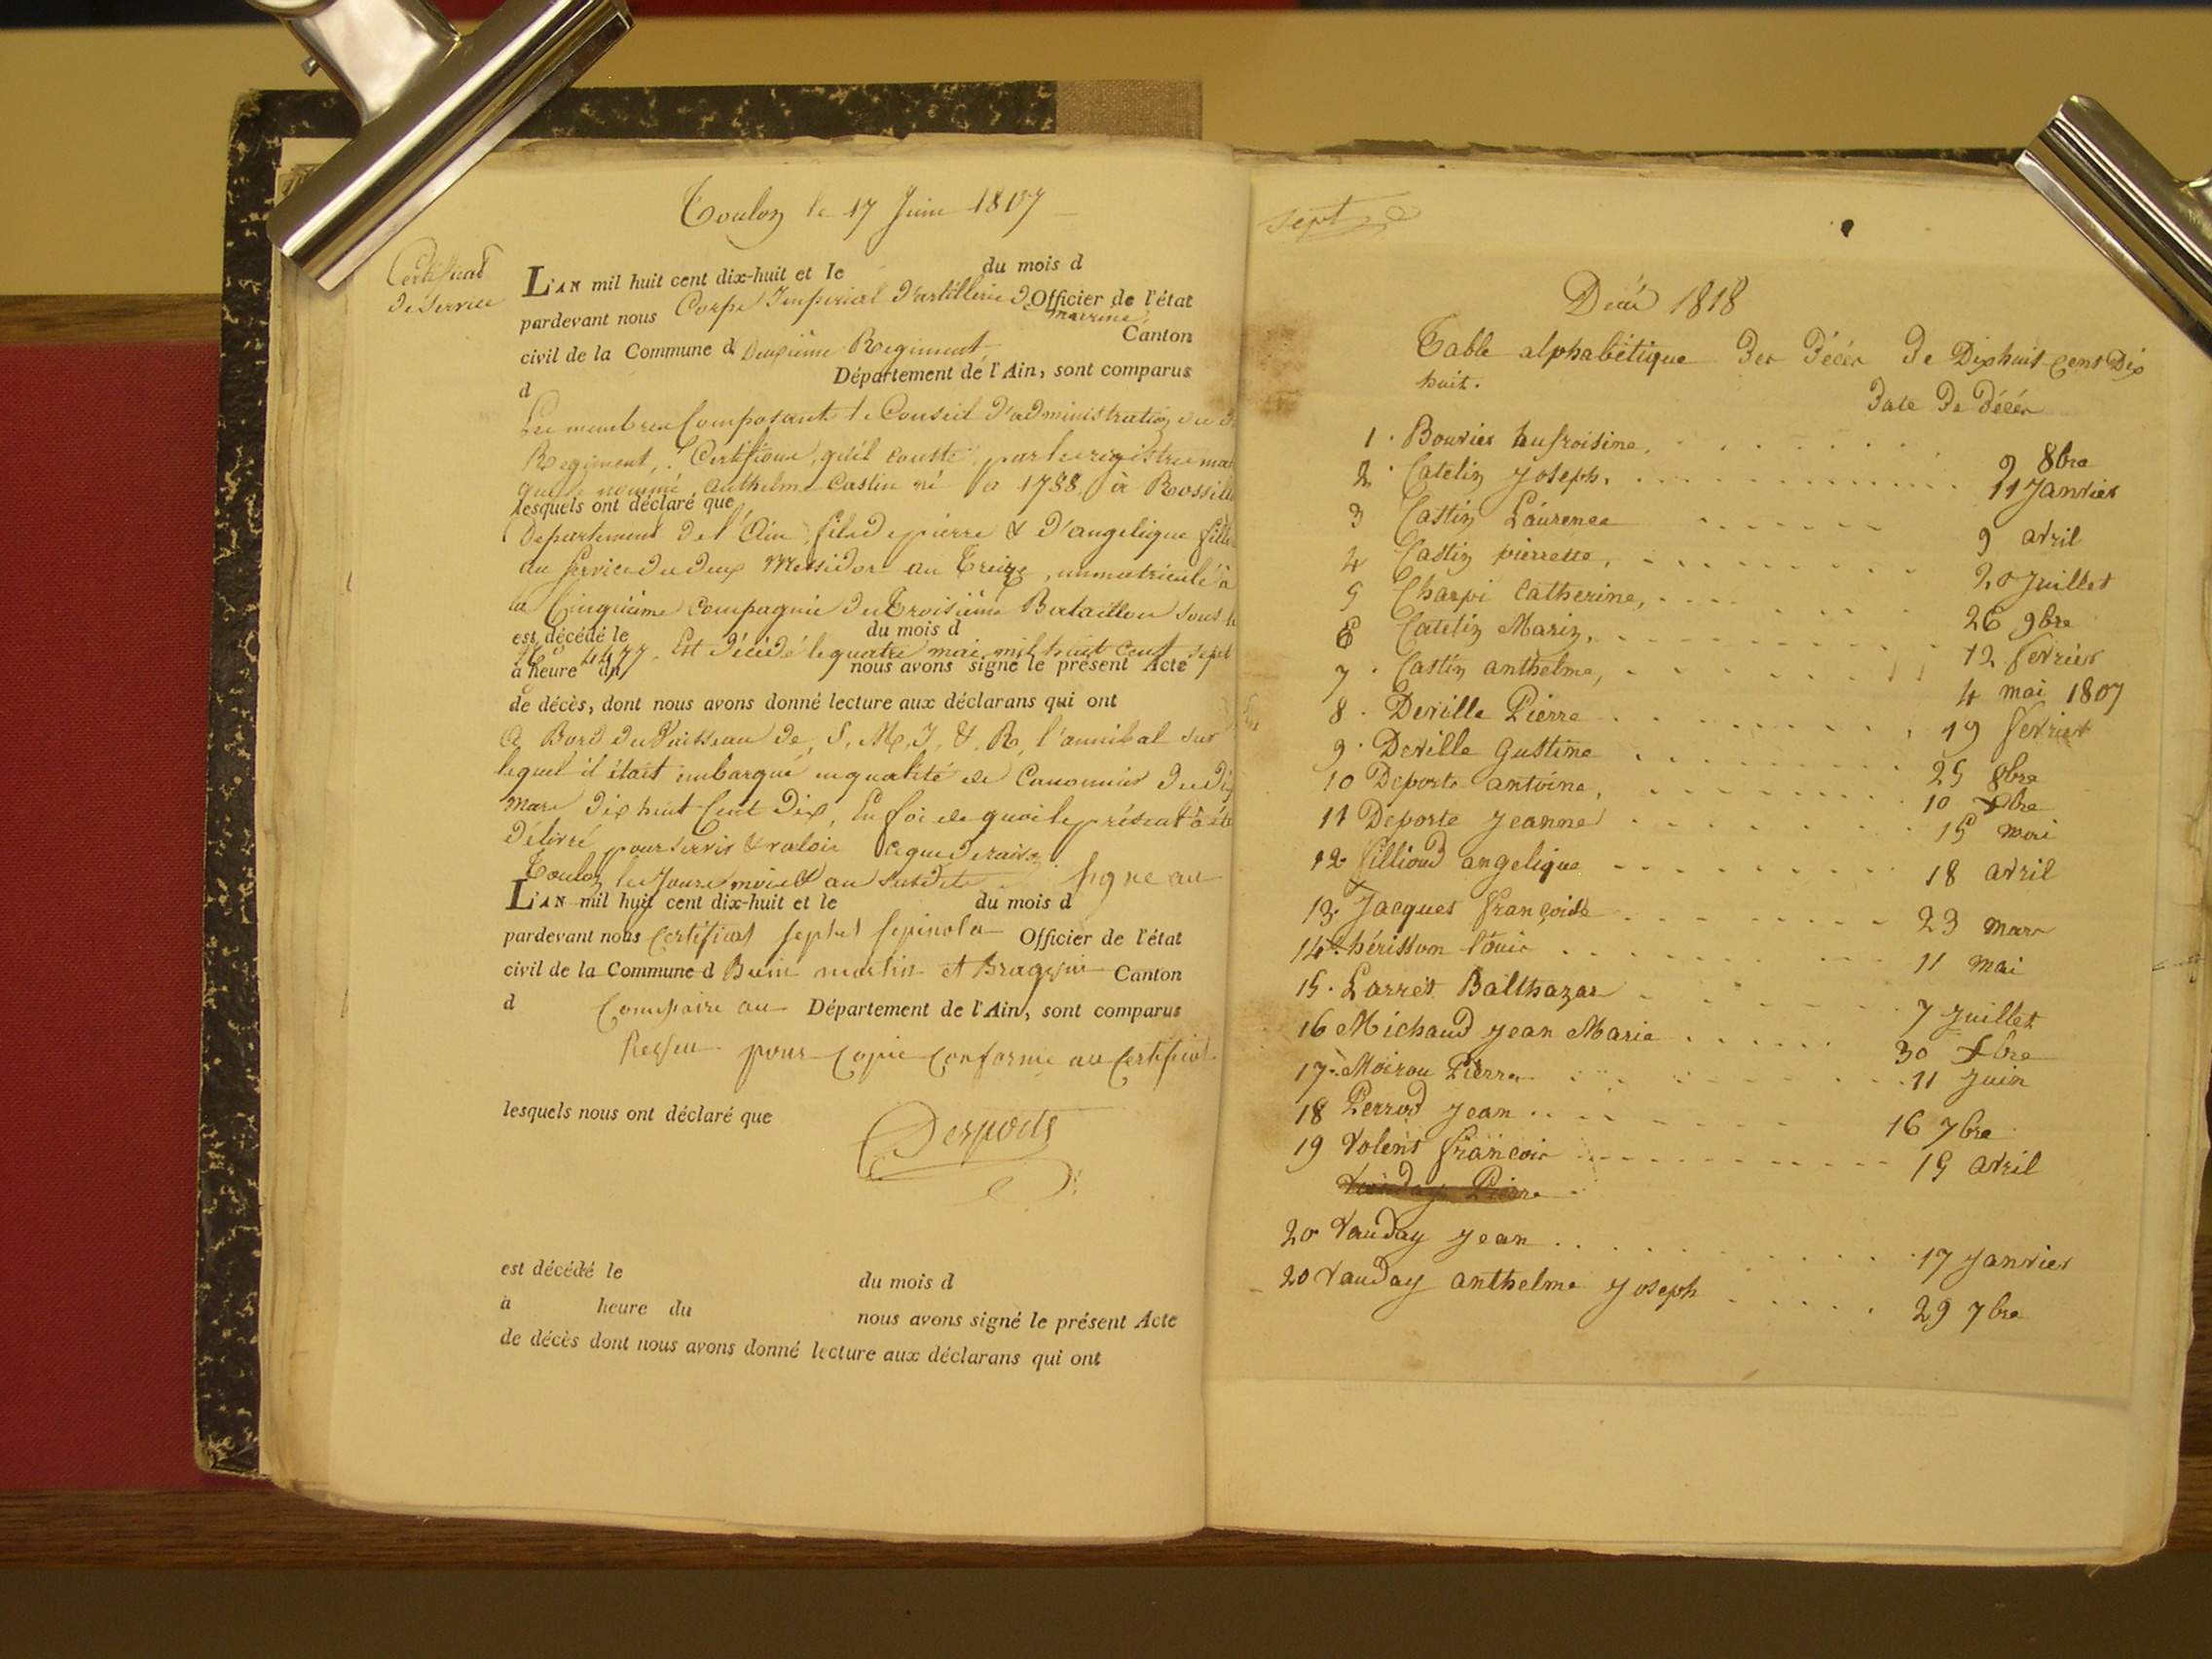 Toulon le 17 Juin 1807
Certificat
de Service
L'AN mil huit cent dix-huit et le du mois d
pardevant nous Corps Imperial d'artillerie de Officier de l'état
marine
civil de la Commune d Deuxième Regiment Canton
d Département de l'Ain, sont comparus
Les membres Composant le Conseil d'administration du
Regiment, Certifions, qu'il conste par le registre
que le nommé anthelme Castin né a 1788, à
lesquels ont déclaré que
Departement de l'Ain, fils de pierre & d'angelique
au Service du deux Messidor an Treize, immatriculé à
la Cinquième Compagnie du Troisième Bataillon sous le
est décédé le du mois d
4477. Est décédé le quatre mai mil huit cent sept
à heure du nous avons signé le présent Acte
de décès, dont nous avons donné lecture aux déclarans qui ont
à Bord du Vaisseau de S. M. I. & R. l'annibal sur
lequel il était embarqué en qualité de Canonnier du dix
Mars dix huit Cent Dix, En foi de quoi le présent à été
Délivré pour servir & valoir ce que de raison
Toulon les Jours mois & an Susdits Signe au
L'AN mil huit cent dix-huit et le du mois d
pardevant nous Certificat Officier de l'état
civil de la Commune d martin et Canton
d au Département de l'Ain, sont comparus
pour Copie Conforme au Certificat
lesquels nous ont déclaré que
Desports
est décédé le du mois d
à heure du nous avons signé le présent Acte
de décès dont nous avons donné lecture aux déclarans qui ont
sept
1818
Table alphabétique des Décés de Dix huit Cent Dix
huit.
Date de Décés
1. Bouvier 9 8bre
2. Catelin Joseph, 11 Janvier
3 Castin Laurence 9 avril
4 Castin pierrette, 20 Juillet
5 Charpi Catherine, 26 9bre
6 Catelin Marin, 12 fevrier
7. Castin anthelme, 4 mai 1807
8. Deville Pierre 19 fevrier
9. Deville Gustine 25 8bre
10 Deporte antoine, 10 Xbre
11 Deporte Jeanne 15 mai
12 fillioud angelique 18 avril
13. Jacques françoise 23 mars
14. hérisson Louis 11 mai
15. Larret Balthazar 7 Juillet
16 Michaud Jean Marie 30 Xbre
17. Moirou Pierre 11 Juin
18 Perrod Jean 16 7bre
19 Volent françois 15 avril
20 Vauday Jean 17 Janvier
20 Vauday anthelme Joseph 29 7bre